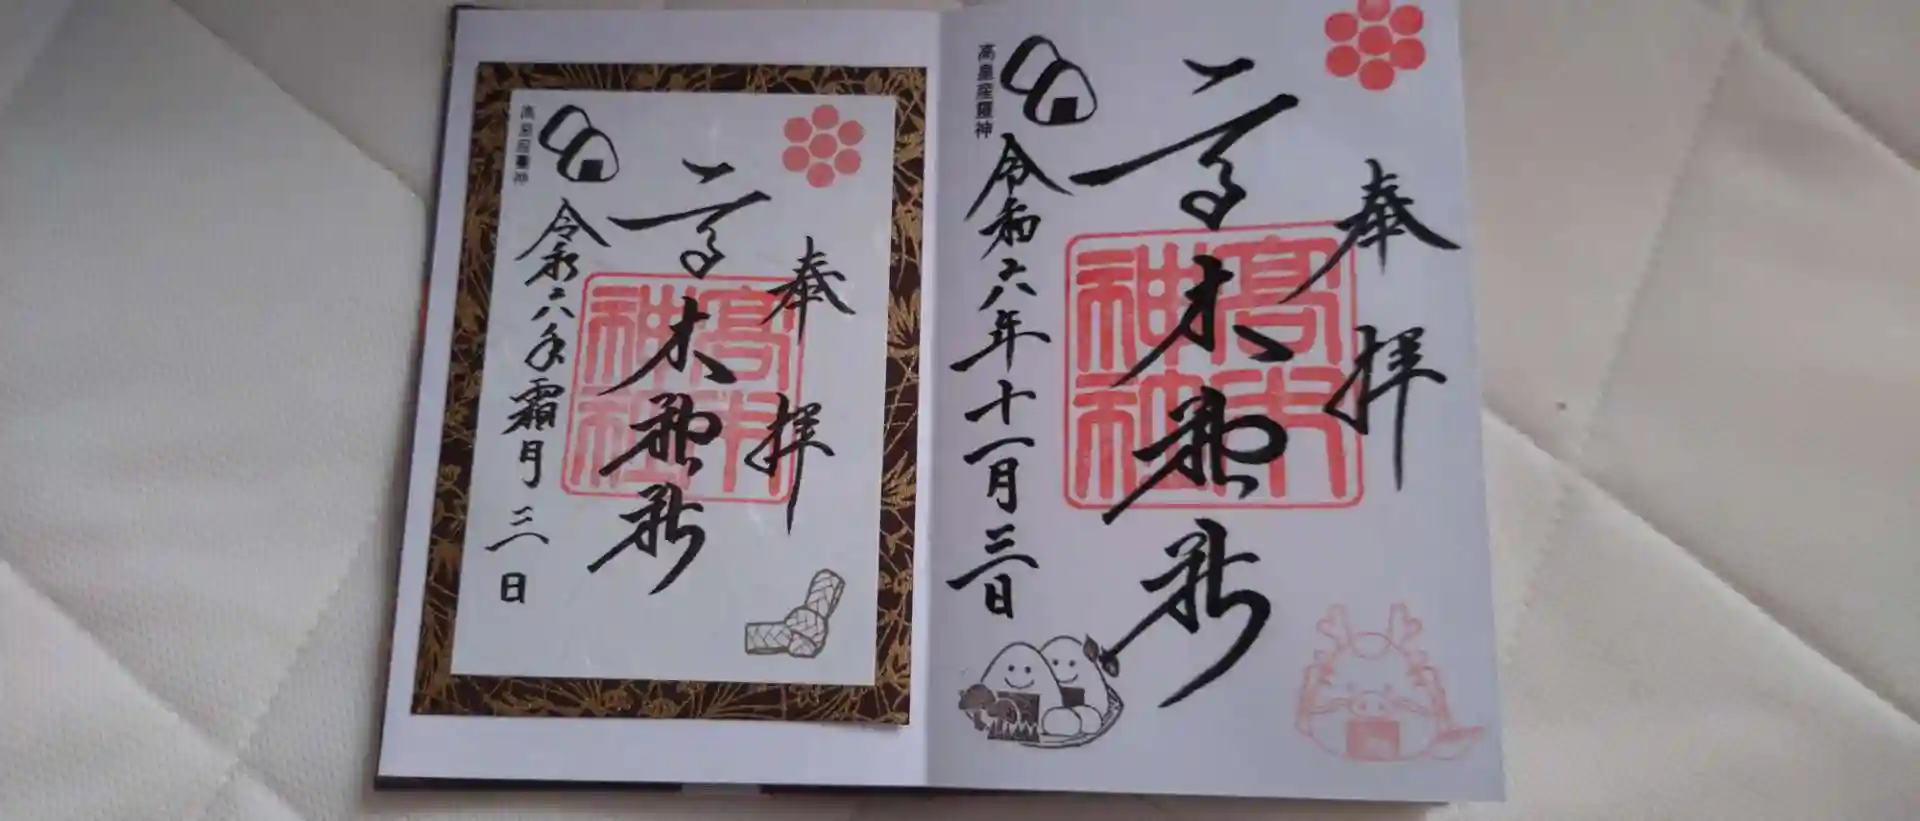 奉拝
高木神社
高木神社
令和六年十一月三日
高皇産霊神
奉拝
高木神社
高木神社
令和六年霜月三日
高皇産霊神